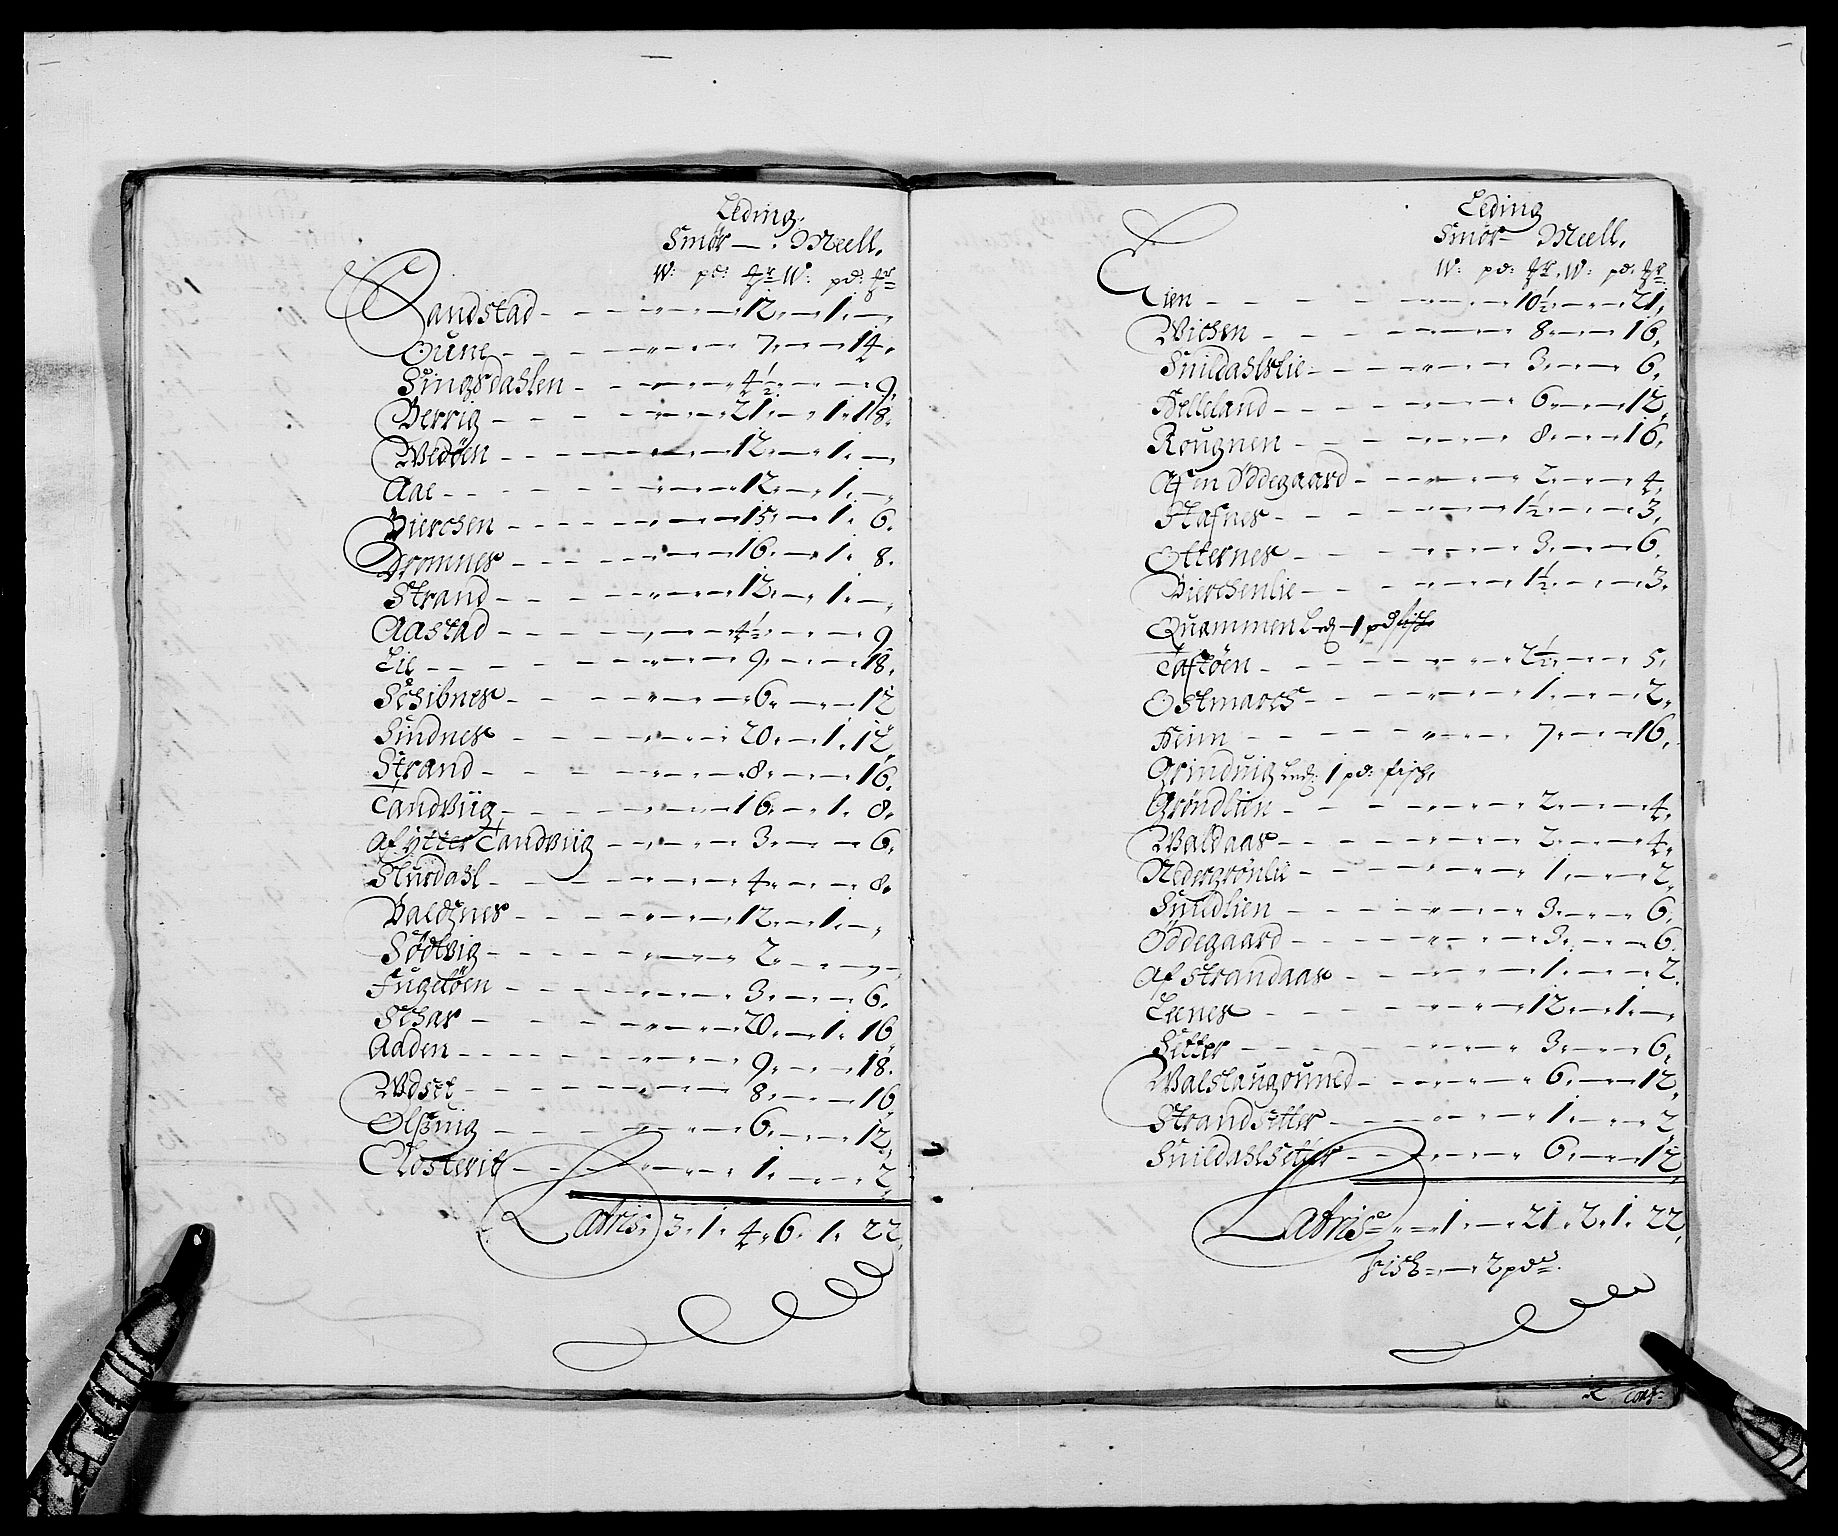 Leding.
Smør — Meell.
W: pd: W: pd:
Sandstad — 12. — 1. —
Oune — 7. — 14.
Singsdahlen — 4½. — 9.
Berrig — 21. — 1. 18.
Wedøen — 12. — 1. —
Aae — 12. — 1. —
Bierchen — 15. — 1. 6.
Dromnes — 16. — 1. 8.
Strand — 12. — 1. —
Aastad — 4½. — 9.
Lie — 9. — 18.
Schibnes — 6. — 12
Sindnes — 20. — 1. 12.
Strand — 8. — 16.
Tandvüg — 16. — 1. 8.
Af ytter Tandvüg — 3. — 6.
Slürdahl — 4. — 8.
Baldsnes — 12. — 1. —
Sødvig — 2. —
Fugeløen — 3. — 6.
Schar — 20. — 1. 16
Aaden — 9. — 18.
Wdset — 8. — 16
Olsvig — 6. — 12.
Closterit — 1. — 2.
Latris. 3. 1. 4. 6. 1. 22.
Leding
Smør — Meell.
W: pd: W: pd:
Eien — 10½. — 21.
Wichen — 8. — 16.
Snildahlslie — 3. — 6.
Helleland — 6. — 12.
Rougnen — 8. — 16.
Af en Ødegaard — 2. — 4.
Stafnes — 1½. — 3.
Otternes — 3. — 6.
Bierchenlie — 1½. — 3.
Quammen Led — 1 pd fisch
Taftøen — 2½. — 5.
Ostmarch — 1. — 2.
Heim — 7. — 16.
Grinduig Led: 1 pd: fisch.
Grøndlien — 2. — 4.
Waldaas — 2. — 4.
Nedergrønlie — 1. — 2.
Sundlien — 3. — 6.
Ødegaard — 3. — 6.
Af Strandaas — 1. — 2.
Leenes — 12. — 1. —
Setter — 3. — 6.
Walslaugouned — 6. — 12.
Strandsetter — 1. — 2.
Snildahlsetter — 6. — 12
Latris — 1. — 21. 2. 1. 22.
Fisch — 2 pd.